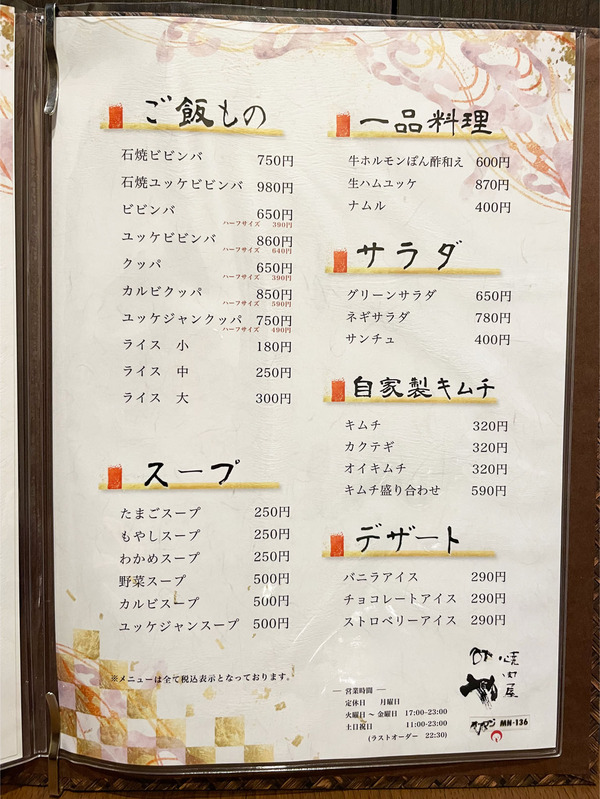 ご飯もの
石焼ビビンバ 750円
石焼ユッケビビンバ 980円
ビビンバ 650円
ハーフサイズ 390円
ユッケビビンバ 860円
ハーフサイズ 640円
クッパ 650円
ハーフサイズ 390円
カルビクッパ 850円
ハーフサイズ 590円
ユッケジャンクッパ 750円
ハーフサイズ 490円
ライス 小 180円
ライス 中 250円
ライス 大 300円
スープ
たまごスープ 250円
もやしスープ 250円
わかめスープ 250円
野菜スープ 500円
カルビスープ 500円
ユッケジャンスープ 500円
※メニューは全て税込表示となっております。
一品料理
牛ホルモンぽん酢和え 600円
生ハムユッケ 870円
ナムル 400円
サラダ
グリーンサラダ 650円
ネギサラダ 780円
サンチュ 400円
自家製キムチ
キムチ 320円
カクテギ 320円
オイキムチ 320円
キムチ盛り合わせ 590円
デザート
バニラアイス 290円
チョコレートアイス 290円
ストロベリーアイス 290円
― 営業時間 ―
定休日 月曜日
火曜日〜金曜日 17:00-23:00
土日祝日 11:00-23:00
(ラストオーダー 22:30)
焼肉屋
MN-136